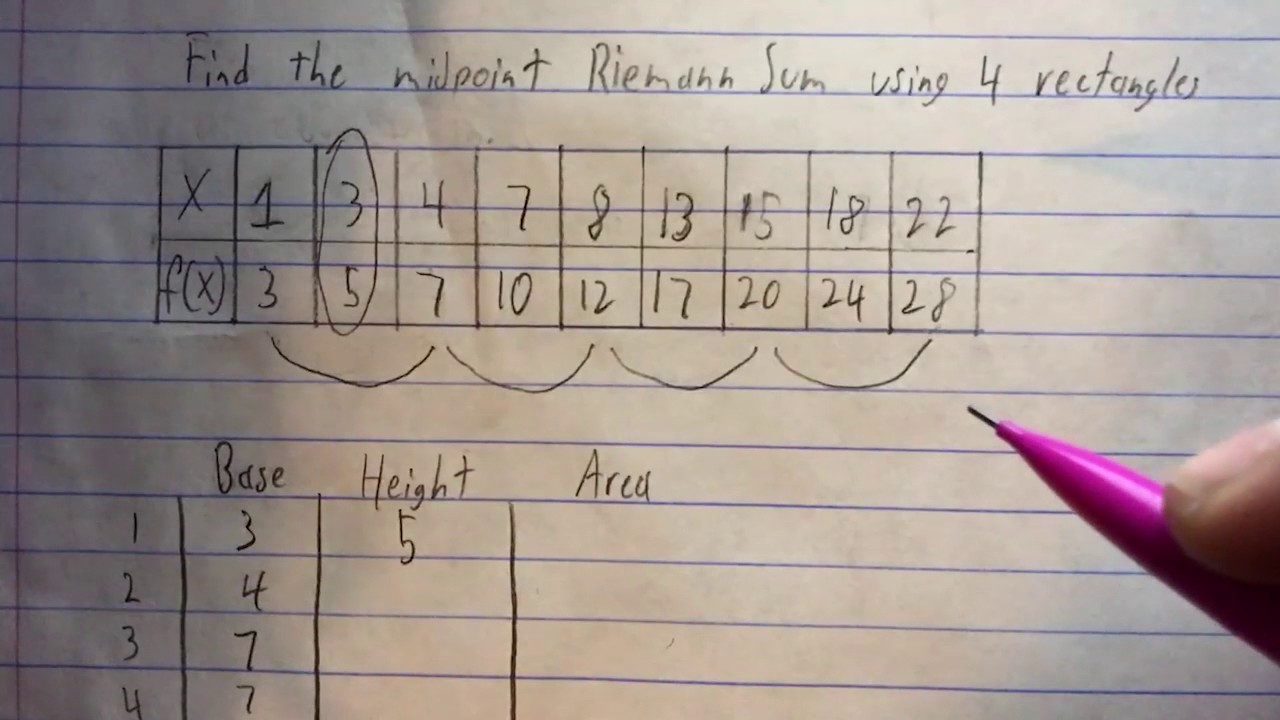 Find the midpoint Riemann Sum using 4 rectangles
X 1 3 4 7 8 13 15 18 22
f(x) 3 5 7 10 12 17 20 24 28
Base Height Area
1 3 5
2 4
3 7
4 7